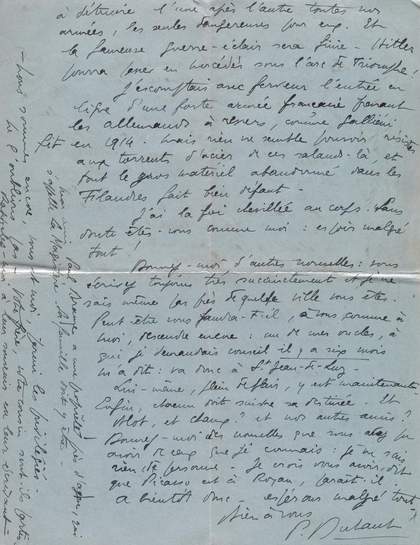 à détruire l'une après l'autre toutes nos
armées, les seules dangereuses pour eux. Et
la fameuse guerre-éclair sera finie. Hitler
pourra passer en mercédès sous l'arc de Triomphe
J'escomptais avec ferveur l'entrée en
ligne d'une forte armée française prenant
les allemands à revers, comme Gallieni
fit en 1914. Mais rien ne semble pouvoir résister
aux torrents d'acier de ces salauds-là, et
tout le gros matériel abandonné dans les
Flandres fait bien défaut -
J'ai la foi chevillée au corps. Sans
doute êtes-vous comme moi : espoir malgré
tout.
Donnez-moi d'autres nouvelles : vous
écrivez toujours très succinctement et je ne
sais même pas près de quelle ville vous êtes.
Peut être vous faudra-t-il, à vous comme à
moi, descendre encore : un de mes oncles, à
qui je demandais conseil il y a six mois
m'a dit : va donc à St Jean-de-Luz -
Lui-même, plein de flair, y est maintenant
Enfin, chacun doit suivre sa destinée. Et
Wlot, et Champ? et nos autres amis?
Donnez-moi des nouvelles que vous
avoir de ceux que je connais : je ne sais
rien de personne. Je crois vous avoir dit
que Picasso est à Royan, paraît-il.
à bientôt donc - espérons malgré tout
bien à vous
- Nous sommes encore, vous et moi, parmi les privilégiés
Ne l'oublions pas - Votre frère, votre cousin sont-ils